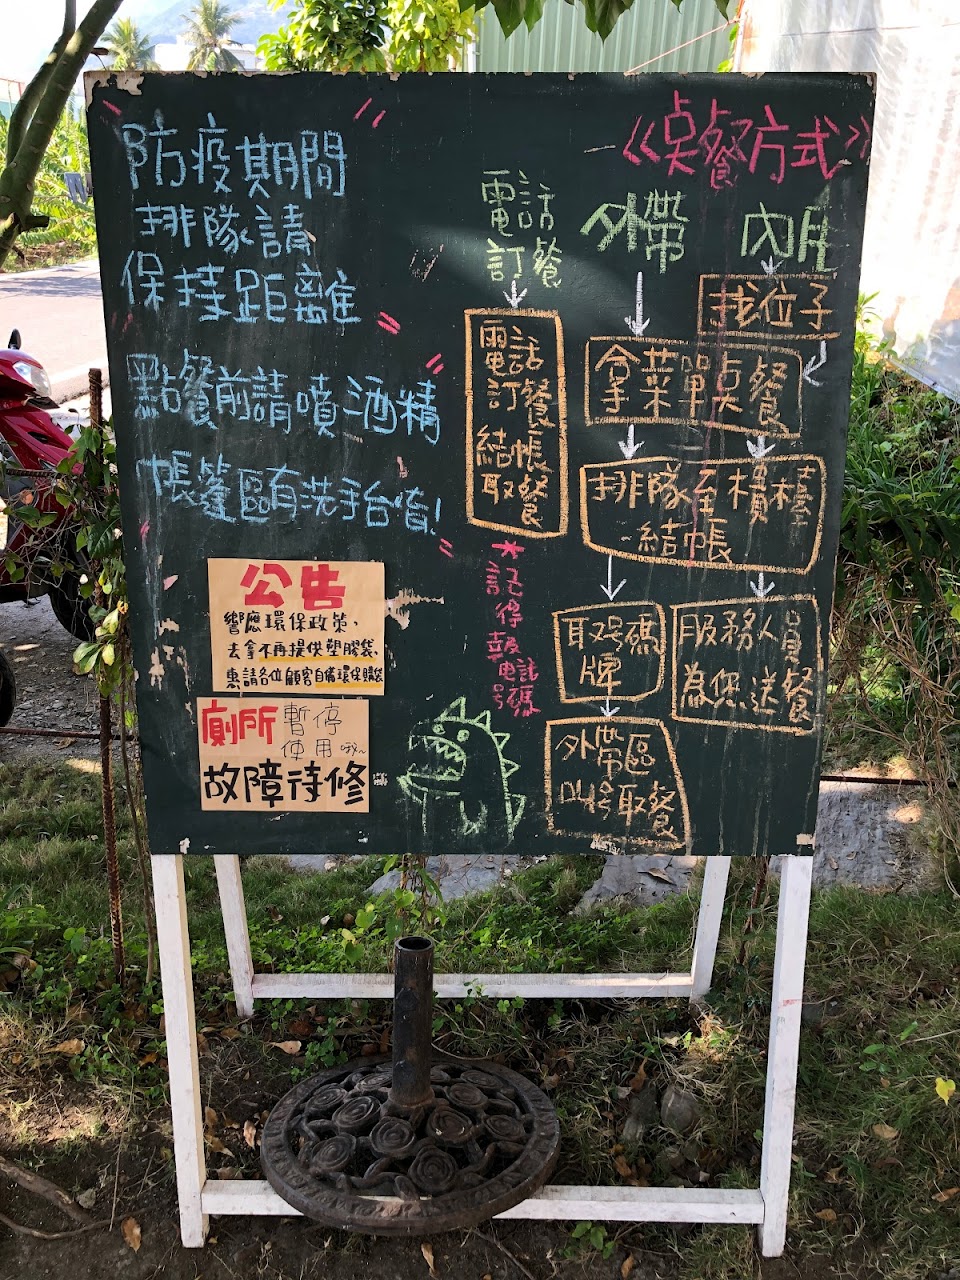 防疫期間
排隊請
保持距離
點餐前請噴酒精
帳篷區有洗手台唷!
公告
響應環保政策,
去拿不再提供塑膠袋,
惠請各位顧客自備環保購袋
廁所 暫停
使用 哦~
故障待修
《点餐方式》
電話
訂餐
電話
訂餐
結帳
取餐
*記得報電話號碼
外帶
內用
找位子
拿菜單点餐
排隊至櫃檯
-結帳
取号碼
牌
外帶區
叫号取餐
服務人員
為您送餐